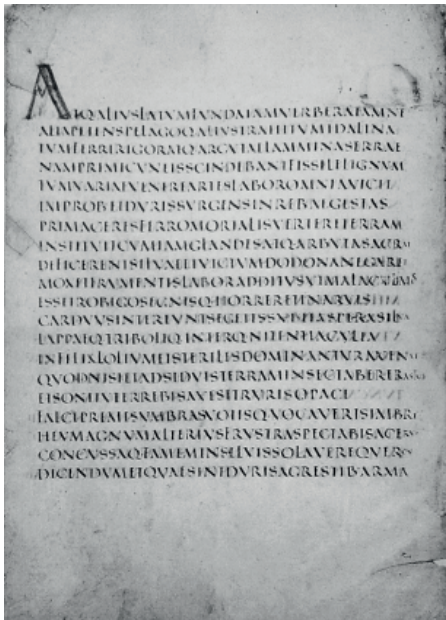 ATQALIVSLATVMFVNDAIAMVERBERATAMNE
ALTAPETENSPELAGOQALIVSTRAHITVMIDALINA
TVMFERRIRIGORATQARGVTAELAMMINASERRAE
NAMPRIMICVNEISSCINDEBANTFISSILELIGNVM
TVMVARIAEVENEREARTESLABOROMNIAVICIT
IMPROBETDVRISSVRGENSINREBVSEGESTAS
PRIMACERESFERROMORTALISVERTERETERRAM
INSTITVITCVMIAMGLANDESATQARBVTASACRAE
DEFICERENTSILVAEETVICTVMDODONANEGARET
MOXETFRVMENTISLABORADDITVSVTMALACVLMOS
ESSETROBIGOSEGNISQHORRERETINARVIS
CARDVVSINTEREVNTSEGETESSVBITASPERASILVA
LAPPAEQTRIBOLIQINTERQNITENTIACVLTA
INFELIXLOLIVMETSTERILESDOMINANTVRAVEN
QVODNISIETADSIDVISTERRAMINSECTABERERAS
ETSONITVTERREBISAVESETRVRISOPACI
FALCEPREMESVMBRASVOTISQVOCAVERISIMBRE
HEVMAGNVMALTERIVSFRVSTRASPECTABISACER
CONCVSSAQFAMEMINSILVISSOLAVEREQVER
DICENDVMETQVAESINTDVRISAGRESTIBARMA